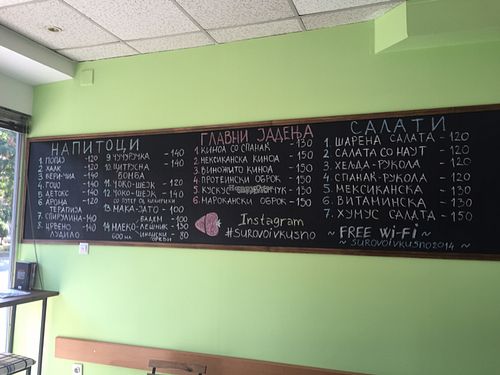 НАПИТОЦИ
1. ПОПАЈ -120
2. ХАЛК -120
3. КРИГЛА
4. ГОЏО -140
5. ДЕТОКС -120
6. АРОНА -120
ТЕРАПИЈА
7. СПИРУЛИНА -140
8. ЦРВЕНО -140
ЛУДИЛО
9. ЧУЧУРУКА - 140
10. ЦИТРУСНА - 140
БОМБА
11. ЧОКО-ШЕЈК - 120
12. ЧОКО-ШЕЈК - 140
13. МАКА-ЛАТО - 100
14 МЛЕКО
БАДЕМ - 100
ЛЕШНИК - 130
ИНДИСКИ - 80
ОРЕВИ
ГЛАВНИ ЈАДЕЊА
1. КИНОА СО СПАНАК - 130
2. МЕКСИКАНСКА КИНОА - 150
3. ВИНОЖИТО КИНОА - 150
4. ПРОТЕИНСКИ ОБРОК - 150
5. КУСКУС - 150
6. МАРОКАНСКИ ОБРОК - 150
Instagram
#SUROVOIVKUSNO
САЛАТИ
1. ШАРЕНА САЛАТА - 120
2. САЛАТА СО НАУТ - 120
3. ХЕЛДА-РУКОЛА - 120
4. СПАНАК-РУКОЛА - 120
5. МЕКСИКАНСКА - 130
6. ВИТАМИНСКА - 130
7. ХУМУС САЛАТА - 150
~ FREE Wi-Fi ~
~ SUROVOIVKUSNO2014 ~